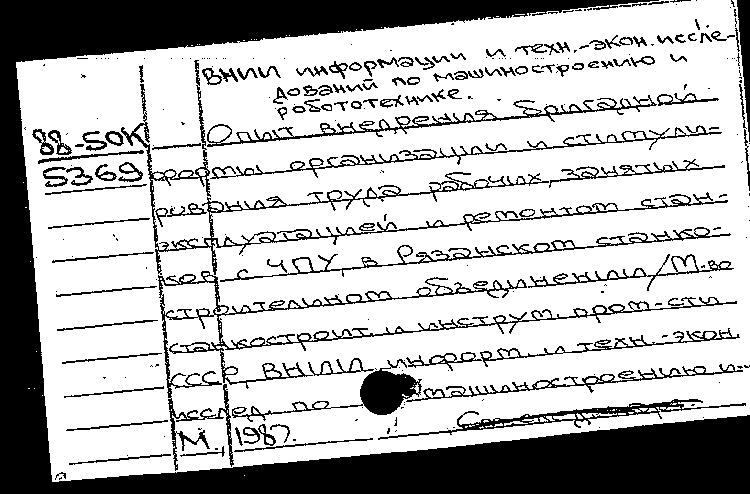 ВНИИ информации и техн.-экон. иссле-
дований по машиностроению и
робототехнике.
88-50К
Опыт внедрения бригадной
5369
формы организации и стимули-
рования труда рабочих, занятых
эксплуатацией и ремонтом стан-
ков с ЧПУ, в Рязанском станко-
строительном объединении/М-во
станкостроит. и инструм. пром-сти
СССР, ВНИИ информ. и техн.-экон.
исслед. по машиностроению и
М., 1987.